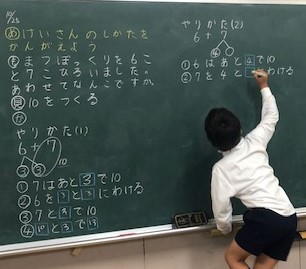 10/25
あ けいさんのしかたを
かんがえよう
も まつぼっくりを6こ
と7こひろいました。
あわせてなんこですか。
見 10をつくる
か
やりかた(1)
6+7
3 3
①7はあと3で10
②6を3と3にわける
③7と3で10
④10と3で13
やりかた(2)
6+7
④
①6はあと4で10
②7を4と わける